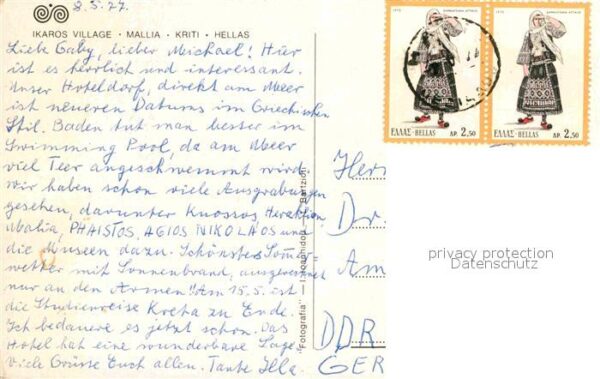 8.5.77.
IKAROS VILLAGE · MALLIA · KRITI · HELLAS
Liebe Gaby, lieber Michael! Hier
ist es herrlich und interessant.
Unser Hoteldorf, direkt am Meer
ist neueren Datums im Griechischen
Stil. Baden tut man besser im
Swimming Pool, da am Meer
viel Teer angeschwemmt wird.
Wir haben schon viele Ausgrabungen
gesehen, darunter Knossos, Heraklion
Malia, PHAISTOS, AGIOS NIKOLAOS und
die Museen dazu. Schönstes Sommer-
wetter mit Sonnenbrand, ausgerechnet
nur an den Armen! Am 15.5. ist
die Studienreise Kreta zu Ende.
Ich bedauere es jetzt schon. Das
Hotel hat eine wunderbare Lage.
Viele Grüsse Euch allen. Tante Illa.
"Fotografia"
1972
ΕΛΛΑΣ-HELLAS ΔΡ. 2,50
ΕΛΛΑΣ-HELLAS ΔΡ. 2,50
Herr
Dr.
Am
DDR
GER
privacy protection
Datenschutz